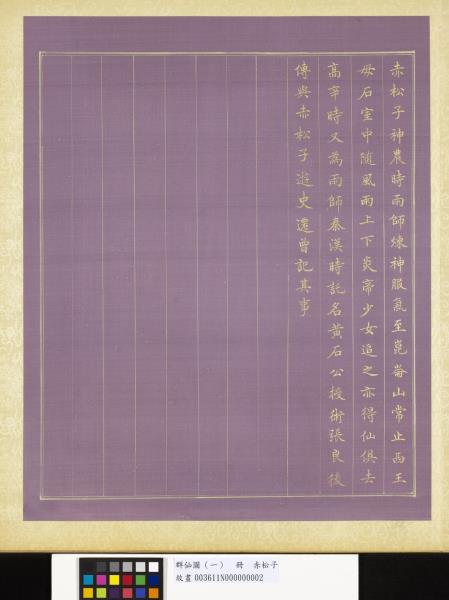 赤松子神農時雨師煉神服氣至崑崙山常止西王
母石室中隨風雨上下炎帝少女追之亦得仙俱去
高辛時又為雨師秦漢時託名黃石公授術張良後
傳與赤松子遊史遷曾記其事
群仙圖(一) 冊 赤松子
故畫 003611N000000002